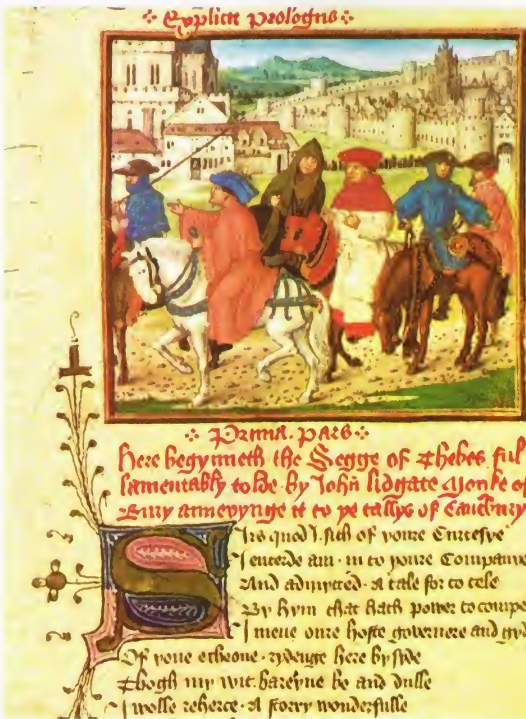 Explicit prologus
Prima. pars
here begynneth the Segge of Thebes ful
lamentably tolde by John lidgate monke of
Bury annexynge it to þe tallys of Cauntbury
Sirs quod I. sith of youre Curtesye
I entrede am. in to youre Companye
And admytted. a tale for to tele
By hym that hath power to compe
I mene oure hoste governere and gyd
Of yone echeone. rydenge here by syde
Thogh my wit. bareyne be and dulle
I wolle reherce. a story wonderfulle